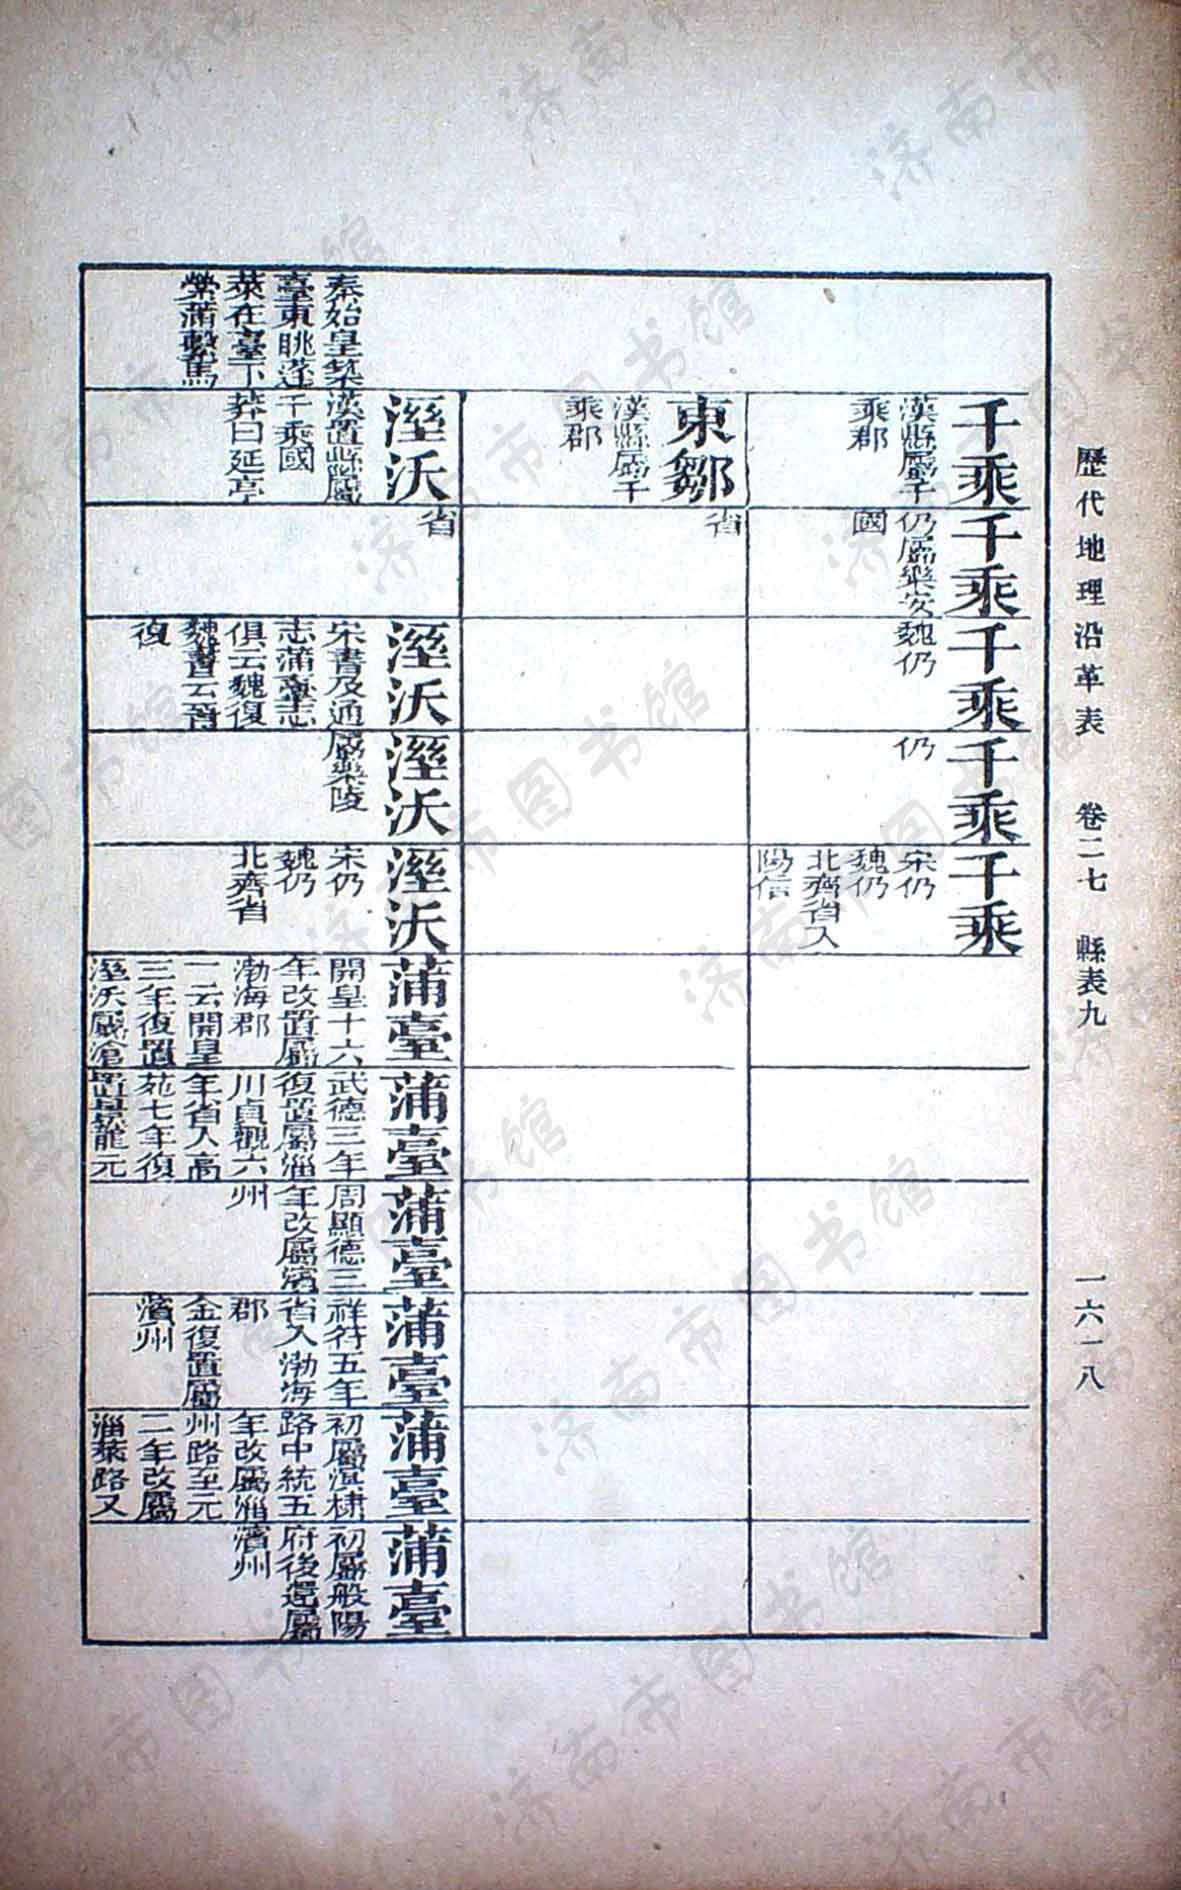 歷代地理沿革表 卷二七 縣表九 一六一八
千乘
漢縣屬千
乘郡
千乘
仍屬樂安
國
千乘
魏仍
千乘
仍
千乘
宋仍
魏仍
北齊省入
陽信
東鄒
漢縣屬千
乘郡
省
秦始皇築
臺東眺蓬
萊在臺下
縈蒲繫馬
溼沃
漢置縣屬
千乘國
莽曰延亭
省
溼沃
宋書及通
志蒲臺志
俱云魏復
魏書云晉
復
溼沃
屬樂陵
溼沃
宋仍
魏仍
北齊省
蒲臺
開皇十六
年改置屬
渤海郡
一云開皇
三年復置
溼沃屬滄
蒲臺
武德三年
復置屬淄
川貞觀六
年省入高
苑七年復
置景龍元
蒲臺
周顯德三
年改屬濱
州
蒲臺
祥符五年
省入渤海
郡
金復置屬
濱州
蒲臺
初屬濱棣
路中統五
年改屬淄
州路至元
二年改屬
淄萊路又
蒲臺
初屬般陽
府後還屬
濱州
济南市图书馆